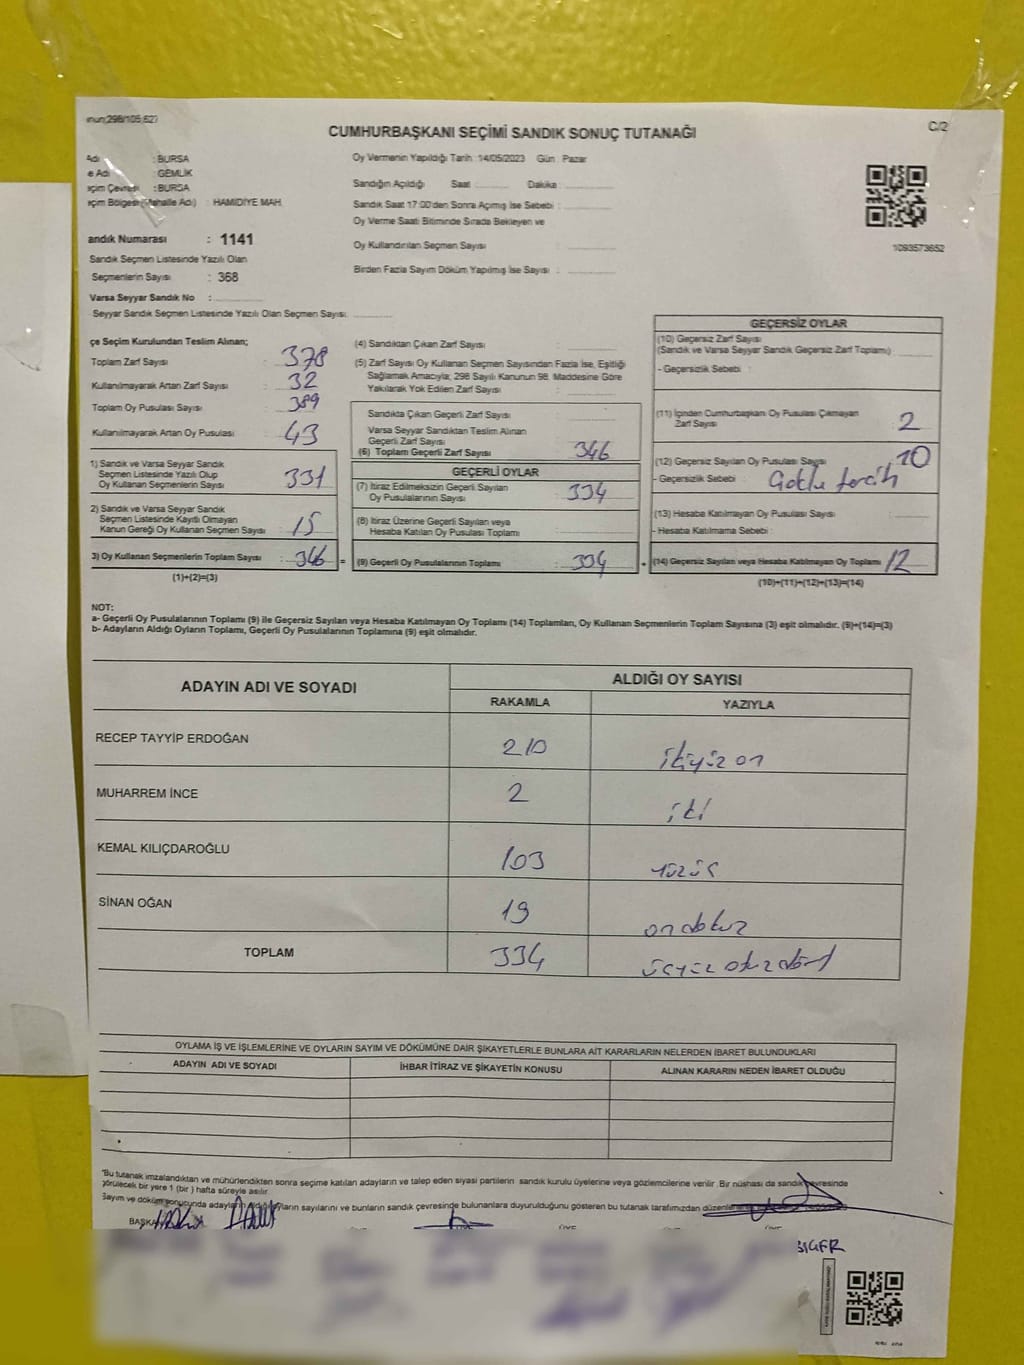 CUMHURBAŞKANI SEÇİMİ SANDIK SONUÇ TUTANAĞI
C/2
Adı : BURSA
e Adı : GEMLİK
eçim Çevresi : BURSA
eçim Bölgesi (Mahalle Adı) : HAMİDİYE MAH.
andık Numarası : 1141
Sandık Seçmen Listesinde Yazılı Olan
Seçmenlerin Sayısı : 368
Varsa Seyyar Sandık No :
Seyyar Sandık Seçmen Listesinde Yazılı Olan Seçmen Sayısı:
Oy Vermenin Yapıldığı Tarih :14/05/2023 Gün : Pazar
Sandığın Açıldığı Saat : Dakika :
Sandık Saat 17:00'den Sonra Açımış İse Sebebi :
Oy Verme Saati Bitiminde Sırada Bekleyen ve
Oy Kullandırılan Seçmen Sayısı :
Birden Fazla Sayım Döküm Yapılmış İse Sayısı :
1093573652
çe Seçim Kurulundan Teslim Alınan;
Toplam Zarf Sayısı : 378
Kullanılmayarak Artan Zarf Sayısı : 32
Toplam Oy Pusulası Sayısı : 389
Kullanılmayarak Artan Oy Pusulası : 43
1) Sandık ve Varsa Seyyar Sandık
Seçmen Listesinde Yazılı Olup
Oy Kullanan Seçmenlerin Sayısı : 331
2) Sandık ve Varsa Seyyar Sandık
Seçmen Listesinde Kayıtlı Olmayan
Kanun Gereği Oy Kullanan Seçmen Sayısı : 15
3) Oy Kullanan Seçmenlerin Toplam Sayısı : 346 =
(1)+(2)=(3)
(4) Sandıktan Çıkan Zarf Sayısı :
(5) Zarf Sayısı Oy Kullanan Seçmen Sayısından Fazla İse, Eşitliği
Sağlamak Amacıyla, 298 Sayılı Kanunun 98. Maddesine Göre
Yakılarak Yok Edilen Zarf Sayısı :
Sandıkta Çıkan Geçerli Zarf Sayısı :
Varsa Seyyar Sandıktan Teslim Alınan
Geçerli Zarf Sayısı :
(6) Toplam Geçerli Zarf Sayısı : 346
GEÇERLİ OYLAR
(7) İtiraz Edilmeksizin Geçerli Sayılan
Oy Pusulalarının Sayısı : 334
(8) İtiraz Üzerine Geçerli Sayılan veya
Hesaba Katılan Oy Pusulası Toplamı :
(9) Geçerli Oy Pusulalarının Toplamı : 334 +
GEÇERSİZ OYLAR
(10) Geçersiz Zarf Sayısı
(Sandık ve Varsa Seyyar Sandık Geçersiz Zarf Toplamı) :
- Geçersizlik Sebebi :
(11) İçinden Cumhurbaşkanı Oy Pusulası Çıkmayan
Zarf Sayısı : 2
(12) Geçersiz Sayılan Oy Pusulası Sayısı : 10
- Geçersizlik Sebebi : Çoklu tercih
(13) Hesaba Katılmayan Oy Pusulası Sayısı :
- Hesaba Katılmama Sebebi :
(14) Geçersiz Sayılan veya Hesaba Katılmayan Oy Toplamı : 12
(10)+(11)+(12)+(13)=(14)
NOT:
a- Geçerli Oy Pusulalarının Toplamı (9) ile Geçersiz Sayılan veya Hesaba Katılmayan Oy Toplamı (14) Toplamları, Oy Kullanan Seçmenlerin Toplam Sayısına (3) eşit olmalıdır. (9)+(14)=(3)
b- Adayların Aldığı Oyların Toplamı, Geçerli Oy Pusulalarının Toplamına (9) eşit olmalıdır.
ADAYIN ADI VE SOYADI ALDIĞI OY SAYISI
RAKAMLA YAZIYLA
RECEP TAYYİP ERDOĞAN 210 ikiyüz on
MUHARREM İNCE 2 iki
KEMAL KILIÇDAROĞLU 103 yüzüç
SİNAN OĞAN 19 ondokuz
TOPLAM 334 üçyüz otuzdört
OYLAMA İŞ VE İŞLEMLERİNE VE OYLARIN SAYIM VE DÖKÜMÜNE DAİR ŞİKAYETLERLE BUNLARA AİT KARARLARIN NELERDEN İBARET BULUNDUKLARI
ADAYIN ADI VE SOYADI İHBAR İTİRAZ VE ŞİKAYETİN KONUSU ALINAN KARARIN NEDEN İBARET OLDUĞU
*Bu tutanak imzalandıktan ve mühürlendikten sonra seçime katılan adayların ve talep eden siyasi partilerin sandık kurulu üyelerine veya gözlemcilerine verilir. Bir nüshası da sandık çevresinde
görülecek bir yere 1 (bir ) hafta süreyle asılır.
Sayım ve döküm sonucunda adayların aldığı oyların sayılarını ve bunların sandık çevresinde bulunanlara duyurulduğunu gösteren bu tutanak tarafımızdan
BAŞKAN